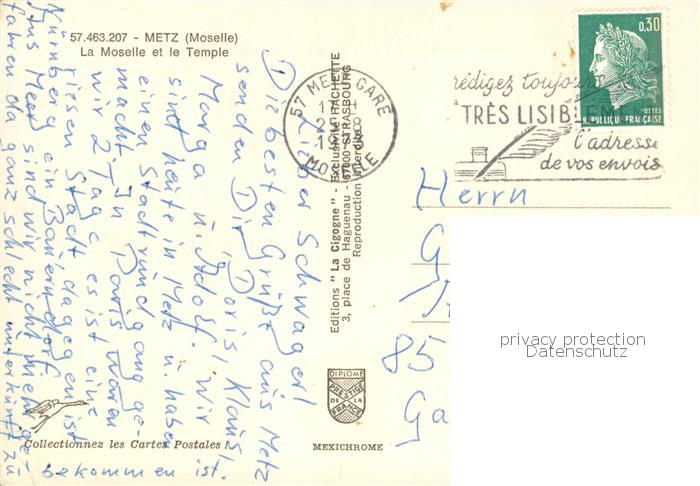 57.463.207 - METZ (Moselle)
La Moselle et le Temple
Lieber Schwager!
Die besten Grüße aus Metz
senden Dir, Doris, Klaus,
Marga u. Adolf. Wir
sind heute in Metz u. haben
einen Stadtrundgang ge-
macht. In Paris waren
wir 2 Tage es ist eine
riesen Stadt dagegen ist
Nürnberg ein Bauerndorf.
Ans Meer sind wir nicht mehr ge-
fahren da ganz schlecht unterkunft zu
bekommen ist.
Collectionnez les Cartes Postales !
Editions " La Cigogne " - Exclusivité HACHETTE
3, place de Haguenau - 67000 STRASBOURG
Reproduction interdite
DIPLOME
PRESTIGE
DE LA
FRANCE
MEXICHROME
57 METZ GARE
MOSELLE
rédigez toujours
TRÈS LISIBLEMENT
l'adresse
de vos envois
0,30
POSTES
REPUBLIQUE FRANÇAISE
Herrn
G
85
Ga
privacy protection
Datenschutz